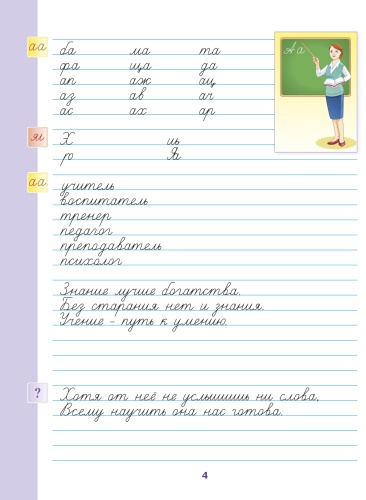 аа ба ма та Аа
фа ща да
ап аж ац
аз ав ач
ас ах ар
я Х иь
ро Я
аа учитель
воспитатель
тренер
педагог
преподаватель
психолог
Знание лучше богатства.
Без старания нет и знания.
Учение – путь к умению.
? Хотя от неё не услышишь ни слова,
Всему научить она нас готова.
4